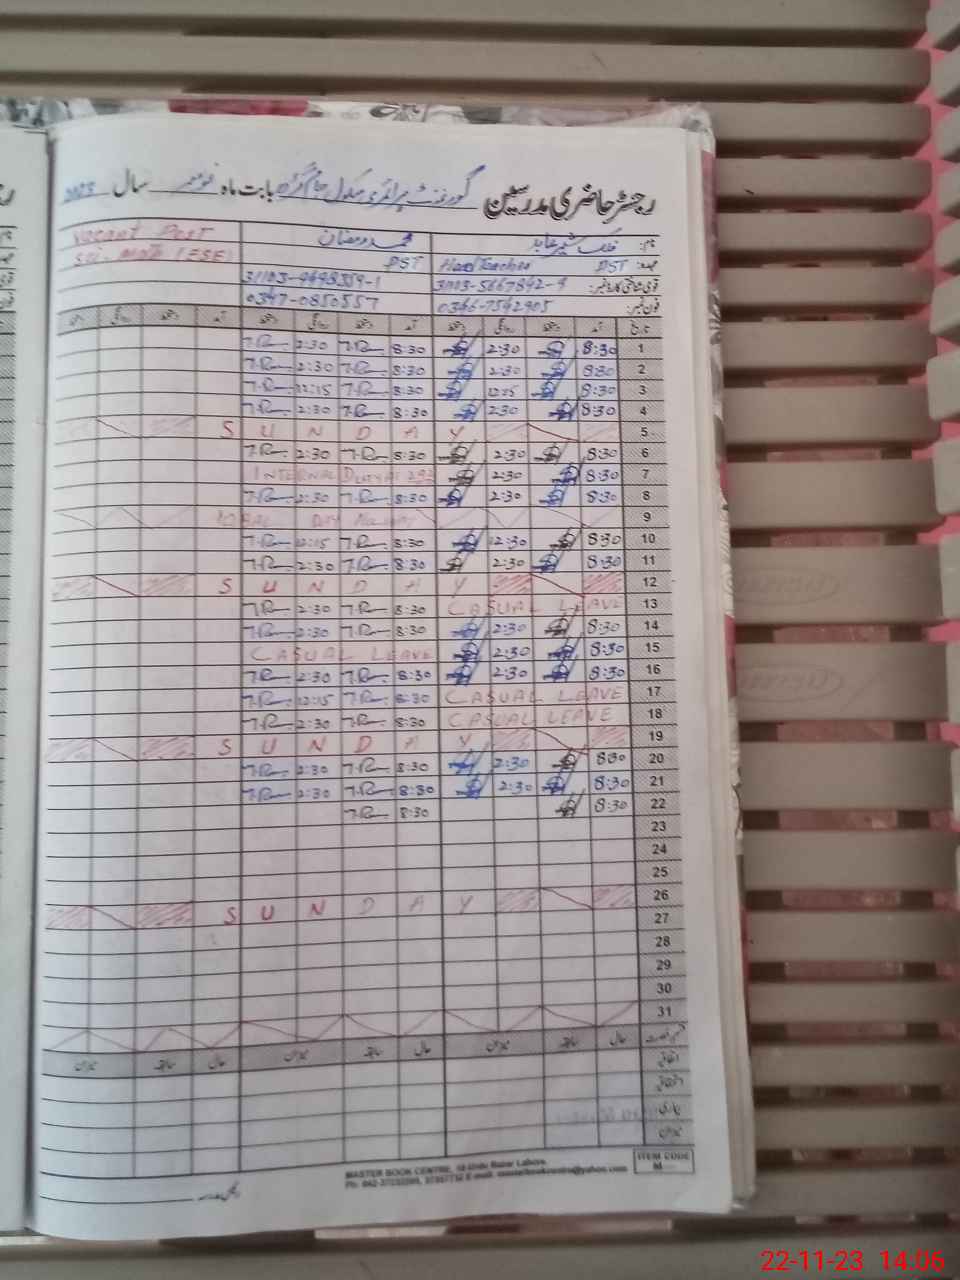 رجسٹر حاضری مدرسین گورنمنٹ پرائمری سکول بابت ماہ نومبر سال 2023
نام: ملک شبیر عابد محمد رمضان Vacant Post
عہدہ: PST Head Teacher PST Sci. Math (ESE)
قومی شناختی کارڈ نمبر:
فون نمبر: 0346-7542905 0347-0850557
تاریخ آمد دستخط روانگی دستخط آمد دستخط روانگی دستخط آمد دستخط روانگی دستخط
1 8:30 2:30 8:30 2:30
2 8:30 2:30 8:30 2:30
3 8:30 12:15 8:30 12:15
4 8:30 2:30 8:30 2:30
5 SUNDAY
6 8:30 2:30 8:30 2:30
7 8:30 2:30 INTERNAL DUTY AT
8 8:30 2:30 8:30 2:30
9 IQBAL DAY HOLIDAY
10 8:30 12:30 8:30 12:15
11 8:30 2:30 8:30 2:30
12 SUNDAY
13 CASUAL LEAVE 8:30 2:30
14 8:30 2:30 8:30 2:30
15 8:30 2:30 CASUAL LEAVE
16 8:30 2:30 8:30 2:30
17 CASUAL LEAVE 8:30 12:15
18 CASUAL LEAVE 8:30 2:30
19 SUNDAY
20 8:30 2:30 8:30 2:30
21 8:30 2:30 8:30 2:30
22 8:30 8:30
23
24
25
26 SUNDAY
27
28
29
30
31
حال سابقہ میزان حال سابقہ میزان حال سابقہ میزان
اتفاقی
استحقاقی
بیماری
میزان
MASTER BOOK CENTRE, Urdu Bazar Lahore.
ITEM CODE
M
22-11-23 14:06